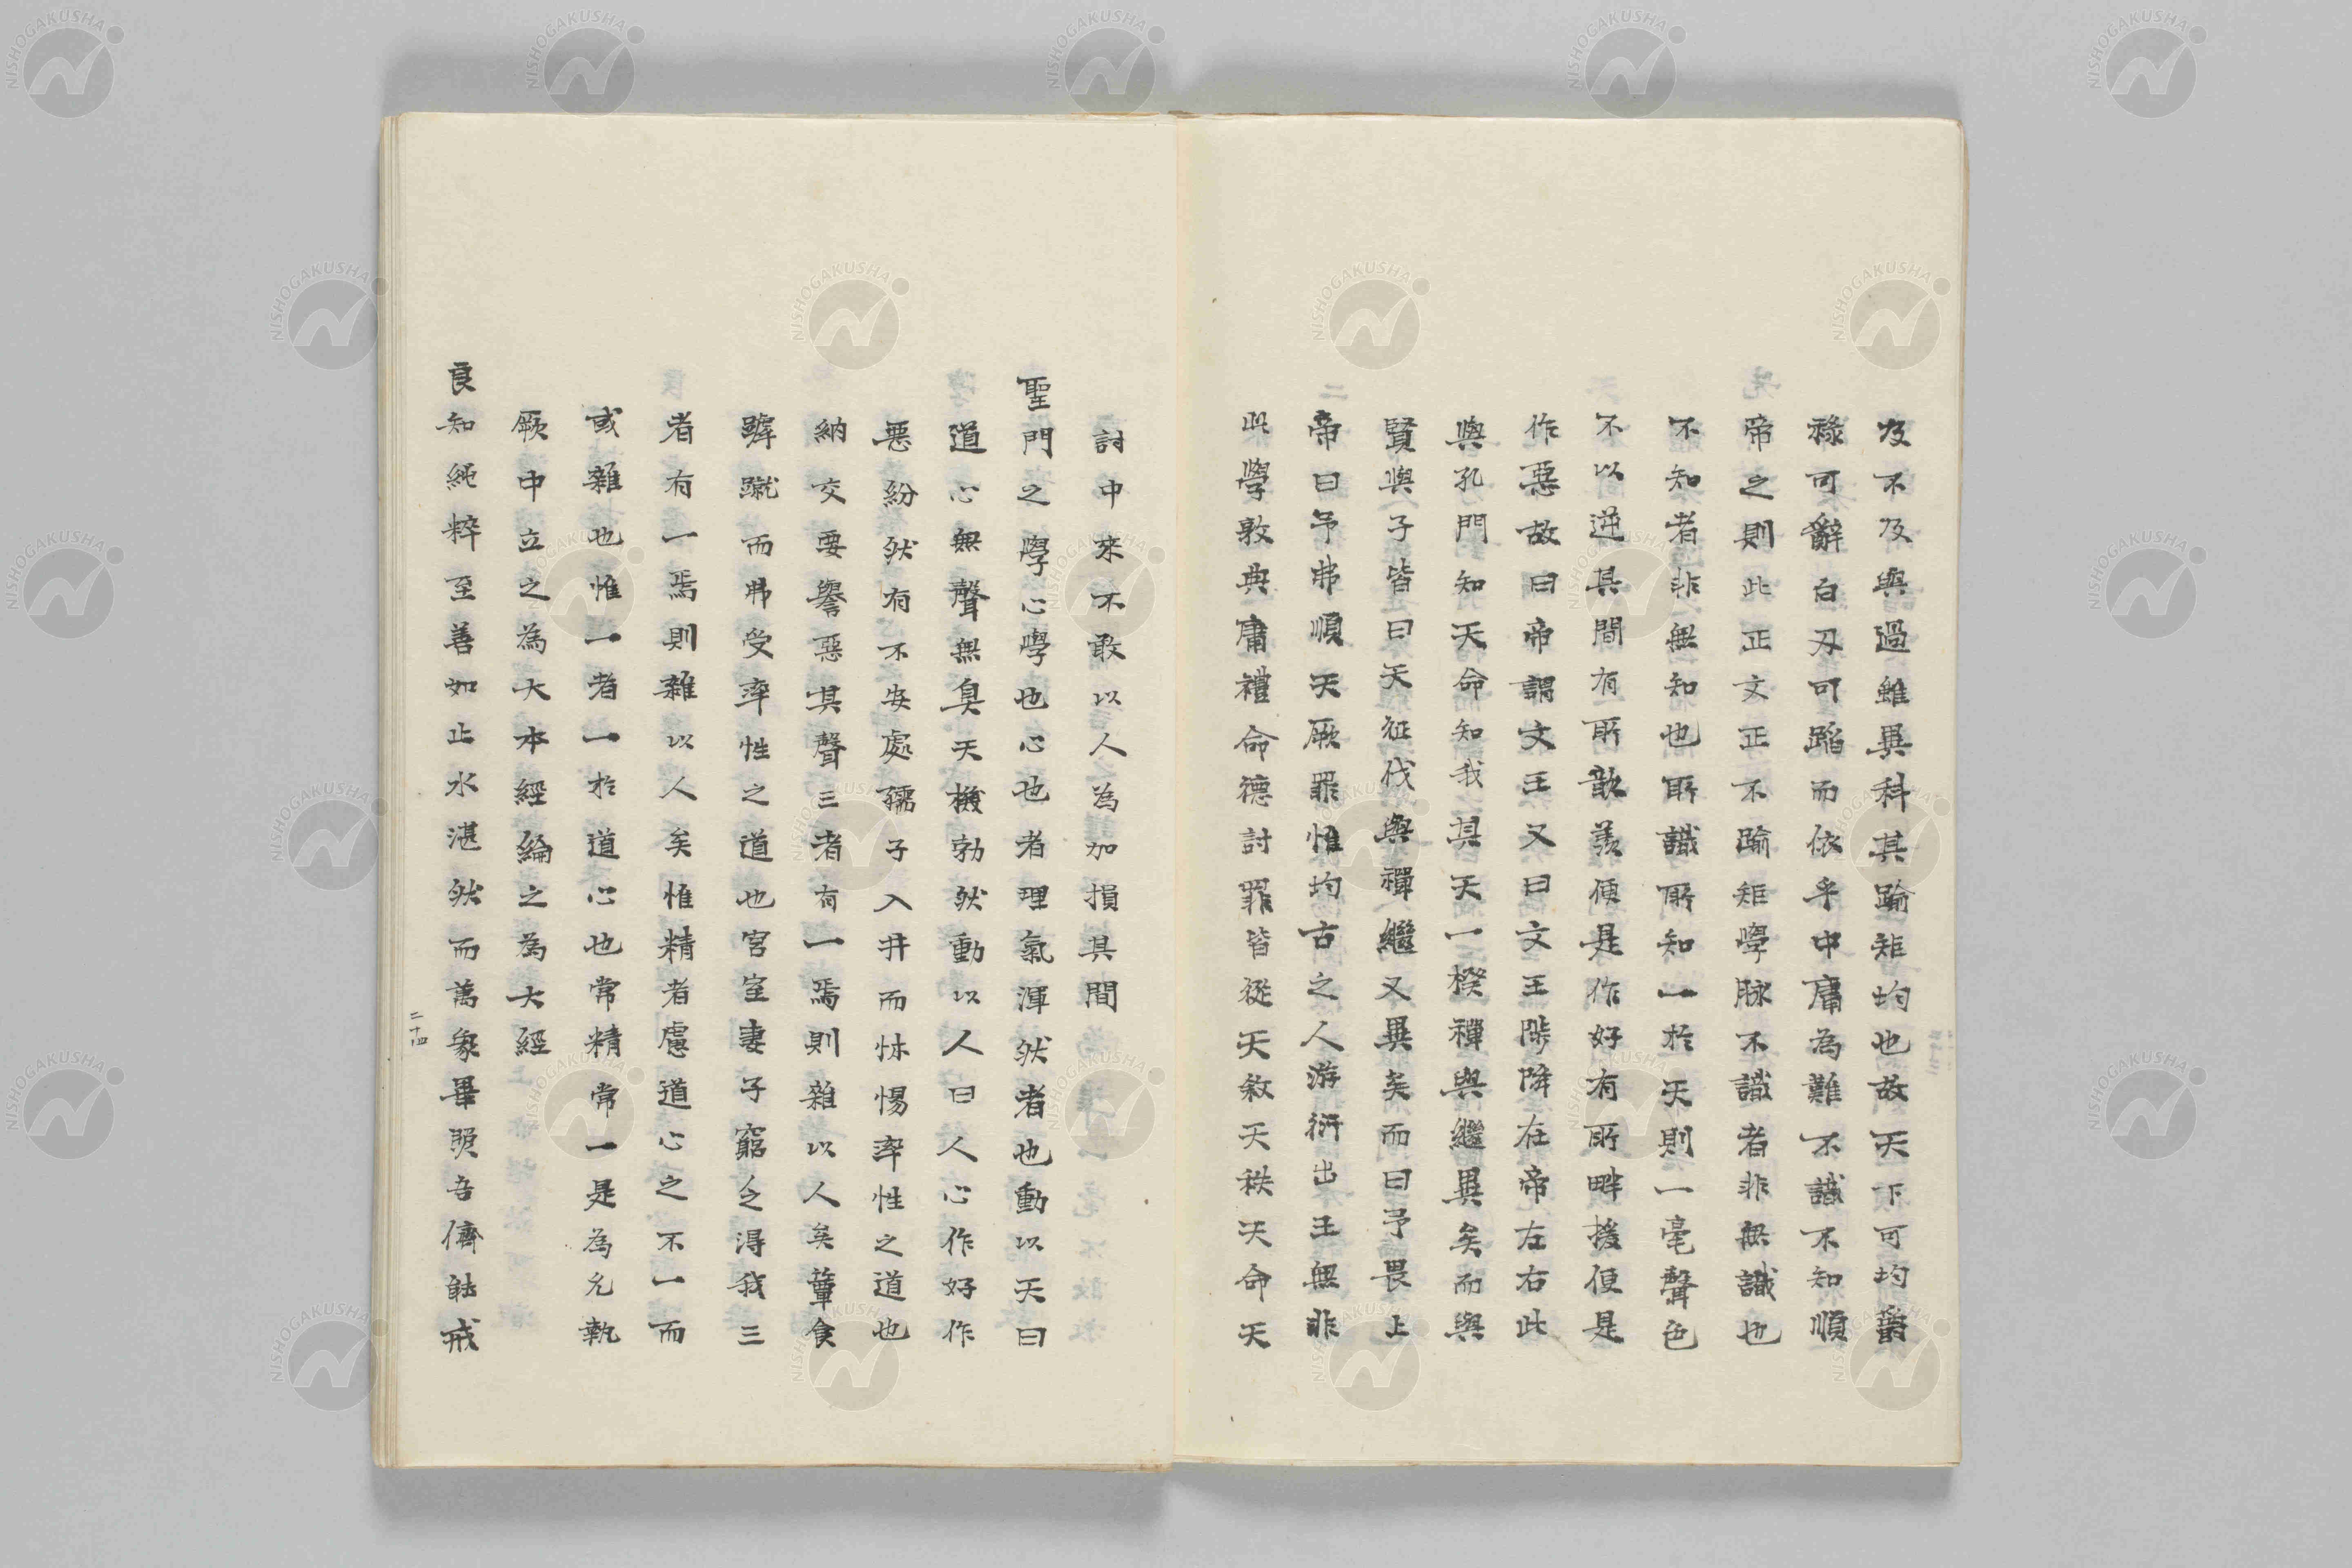 及不及與過雖異科其踰矩均也故天下可均爵
祿可辭白刃可蹈而依乎中庸為難不識不知順
帝之則此正文正不踰矩學脉不識者非無識也
不知者非無知也所識所知一於天則一毫聲色
不以逆其間有所歆羨便是作好有所畔援便是
作惡故曰帝謂文王又曰文王陟降在帝左右此
與孔門知天命知我其天一揆禪與繼異矣而與
賢與子皆曰天征伐與禪繼又異矣而曰予畏上
帝曰予弗順天厥罪惟均古之人游衍出王無非
此學敦典庸禮命德討罪皆從天敘天秩天命天
討中來不敢以人為加損其間
聖門之學心學也心也者理氣渾然者也動以天曰
道心無聲無臭天機勃然動以人曰人心作好作
惡紛然有不安處孺子入井而怵惕率性之道也
納交要譽惡其聲三者有一焉則雜以人矣簞食
嘑蹴而弗受率性之道也宮室妻子窮乏得我三
者有一焉則雜以人矣惟精者慮道心之不一而
或雜也惟一者一於道心也常精常一是為允執
厥中立之為大本經綸之為大經
良知純粹至善如止水湛然而萬象畢照吾儕能戒
二十四
NISHOGAKUSHA